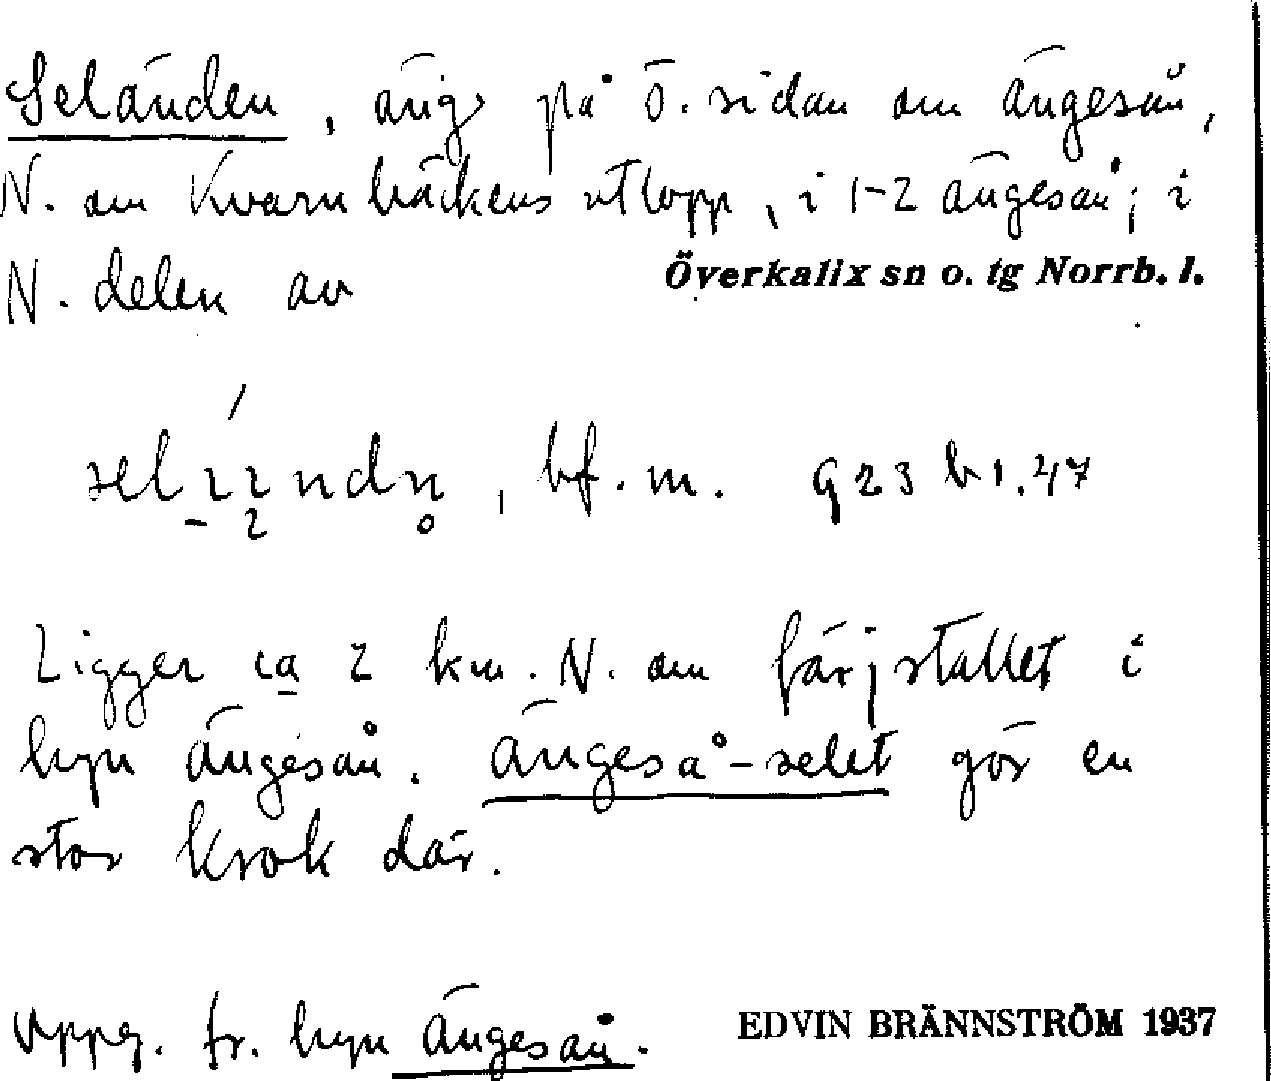 Seländen, äng på ö. sidan om Ängesån,
N. om Kvarnbäckens utlopp, i 1-2 Ängesån; i
N. delen av
Överkalix sn o. tg Norrb. l.
, bf. m. G 23 b 1.47
Ligger ca 2 km. N. om färjstället i
byn Ängesån. Ängeså-selet gör en
stor krok där.
Uppg. fr. byn Ängesån.
EDVIN BRÄNNSTRÖM 1937